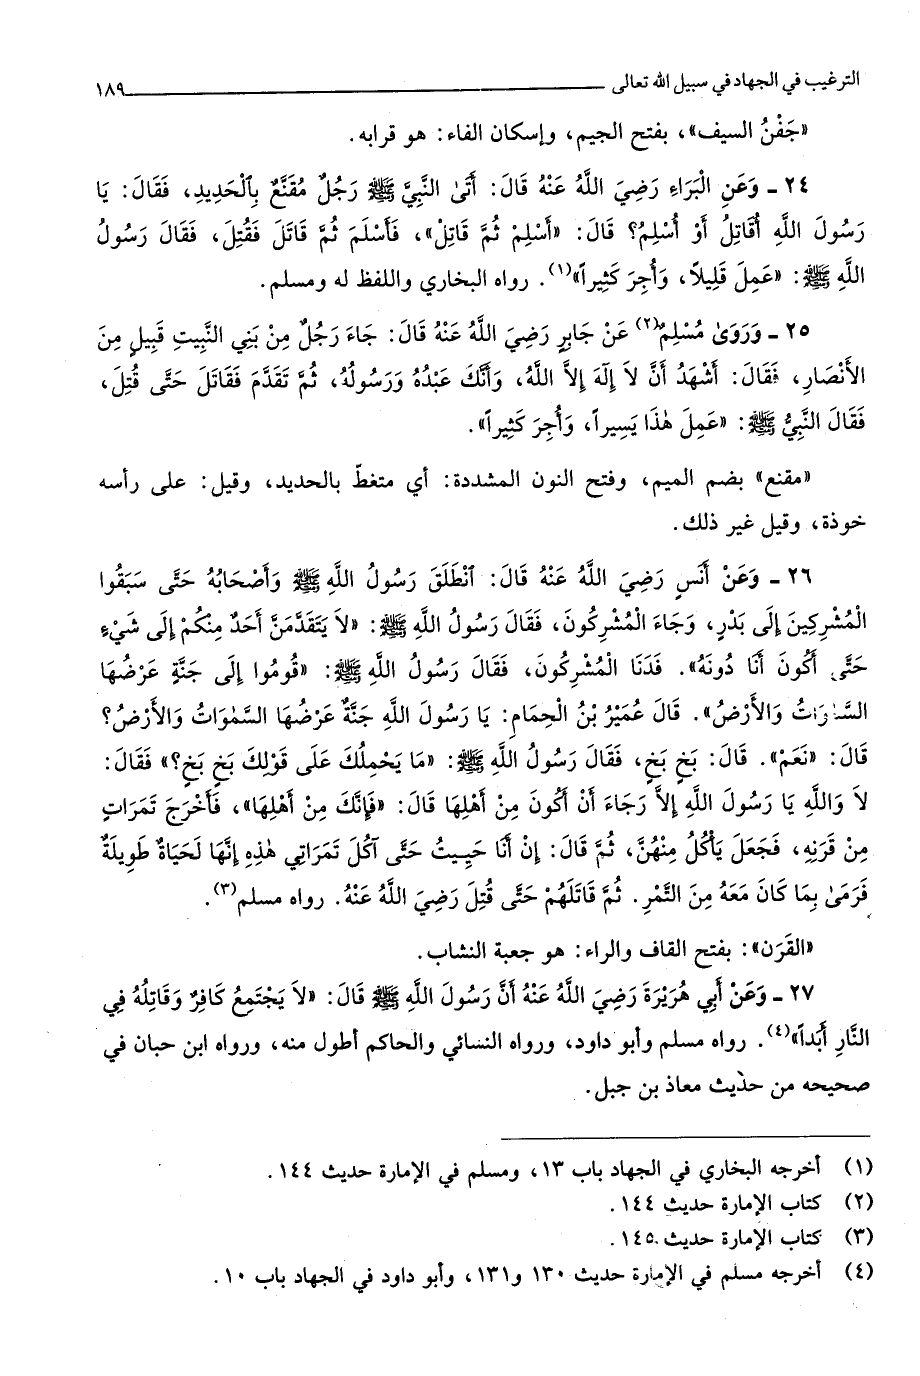 الترغيب في الجهاد في سبيل الله تعالى ١٨٩
«جَفْنُ السيف»، بفتح الجيم، وإسكان الفاء: هو قرابه.
٢٤ ـ وَعَنِ الْبَرَاءِ رَضِيَ اللَّهُ عَنْهُ قَالَ: أَتَىٰ النَّبِيَّ ﷺ رَجُلٌ مُقَنَّعٌ بِالْحَدِيدِ، فَقَالَ: يَا
رَسُولَ اللَّهِ أُقَاتِلُ أَوْ أُسْلِمُ؟ قَالَ: «أَسْلِمْ ثُمَّ قَاتِلْ»، فَأَسْلَمَ ثُمَّ قَاتَلَ فَقُتِلَ، فَقَالَ رَسُولُ
اللَّهِ ﷺ: «عَمِلَ قَلِيلاً، وَأُجِرَ كَثِيراً»(١). رواه البخاري واللفظ له ومسلم.
٢٥ ـ وَرَوَىٰ مُسْلِمٌ(٢) عَنْ جَابِرٍ رَضِيَ اللَّهُ عَنْهُ قَالَ: جَاءَ رَجُلٌ مِنْ بَنِي النَّبِيتِ قَبِيلٍ مِنَ
الأَنْصَارِ، فَقَالَ: أَشْهَدُ أَنَّ لاَ إِلَهَ إِلاَّ اللَّهُ، وَأَنَّكَ عَبْدُهُ وَرَسُولُهُ، ثُمَّ تَقَدَّمَ فَقَاتَلَ حَتَّى قُتِلَ،
فَقَالَ النَّبِيُّ ﷺ: «عَمِلَ هٰذَا يَسِيراً، وَأُجِرَ كَثِيراً».
«مقنع» بضم الميم، وفتح النون المشددة: أي متغطّ بالحديد، وقيل: على رأسه
خوذة، وقيل غير ذلك.
٢٦ ـ وَعَنْ أَنَسٍ رَضِيَ اللَّهُ عَنْهُ قَالَ: انْطَلَقَ رَسُولُ اللَّهِ ﷺ وَأَصْحَابُهُ حَتَّى سَبَقُوا
الْمُشْرِكِينَ إِلَى بَدْرٍ، وَجَاءَ الْمُشْرِكُونَ، فَقَالَ رَسُولُ اللَّهِ ﷺ: «لاَ يَتَقَدَّمَنَّ أَحَدٌ مِنْكُمْ إِلَى شَيْءٍ
حَتَّى أَكُونَ أَنَا دُونَهُ». فَدَنَا الْمُشْرِكُونَ، فَقَالَ رَسُولُ اللَّهِ ﷺ: «قُومُوا إِلَى جَنَّةٍ عَرْضُهَا
السَّمٰوَاتُ وَالأَرْضُ». قَالَ عُمَيْرُ بْنُ الْحِمَامِ: يَا رَسُولَ اللَّهِ جَنَّةٌ عَرْضُهَا السَّمٰوَاتُ وَالأَرْضُ؟
قَالَ: «نَعَمْ». قَالَ: بَخٍ بَخٍ، فَقَالَ رَسُولُ اللَّهِ ﷺ: «مَا يَحْمِلُكَ عَلَى قَوْلِكَ بَخٍ بَخٍ؟» فَقَالَ:
لاَ وَاللَّهِ يَا رَسُولَ اللَّهِ إِلاَّ رَجَاءَ أَنْ أَكُونَ مِنْ أَهْلِهَا قَالَ: «فَإِنَّكَ مِنْ أَهْلِهَا»، فَأَخْرَجَ تَمَرَاتٍ
مِنْ قَرَنِهِ، فَجَعَلَ يَأْكُلُ مِنْهُنَّ، ثُمَّ قَالَ: إِنْ أَنَا حَيِيتُ حَتَّى آكُلَ تَمَرَاتِي هٰذِهِ إِنَّهَا لَحَيَاةٌ طَوِيلَةٌ
فَرَمَىٰ بِمَا كَانَ مَعَهُ مِنَ التَّمْرِ. ثُمَّ قَاتَلَهُمْ حَتَّى قُتِلَ رَضِيَ اللَّهُ عَنْهُ. رواه مسلم(٣).
«القَرَن»: بفتح القاف والراء: هو جعبة النشاب.
٢٧ ـ وَعَنْ أَبِي هُرَيْرَةَ رَضِيَ اللَّهُ عَنْهُ أَنَّ رَسُولَ اللَّهِ ﷺ قَالَ: «لاَ يَجْتَمِعُ كَافِرٌ وَقَاتِلُهُ فِي
النَّارِ أَبَداً»(٤). رواه مسلم وأبو داود، ورواه النسائي والحاكم أطول منه، ورواه ابن حبان في
صحيحه من حديث معاذ بن جبل.
(١) أخرجه البخاري في الجهاد باب ١٣، ومسلم في الإمارة حديث ١٤٤.
(٢) كتاب الإمارة حديث ١٤٤.
(٣) كتاب الإمارة حديث ١٤٥.
(٤) أخرجه مسلم في الإمارة حديث ١٣٠ و١٣١، وأبو داود في الجهاد باب ١٠.